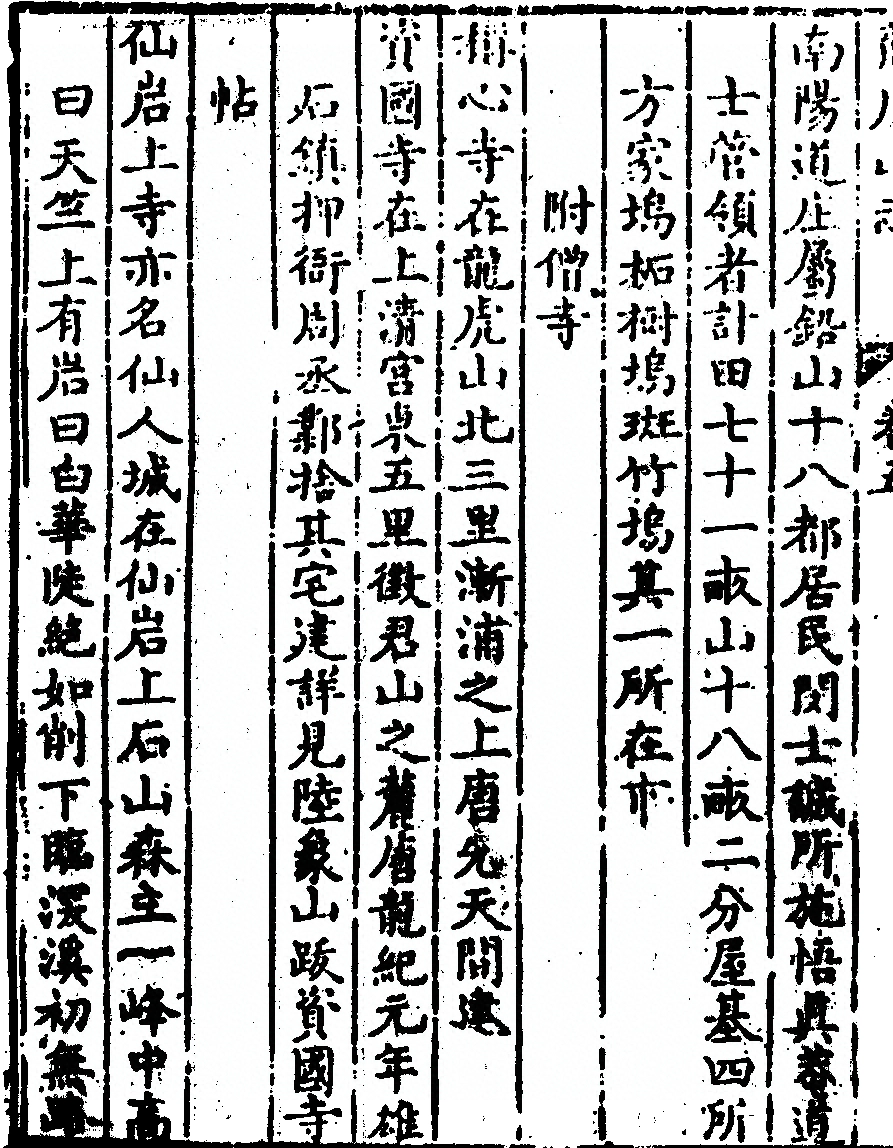 南陽道庄屬鉛山十八都居民閔士誠所施悟眞菴道
士管領者計田七十一畝山十八畝二分屋基四所
方家塢柘樹塢斑竹塢其一所在市
附僧寺
心寺在龍虎山北三里漸浦之上唐先天間建
資國寺在上清宮東五里徵君山之麓唐龍紀元年雄
石鎮押衙周丞鄴捨其宅建詳見陸象山跋資國寺
帖
仙岩上寺亦名仙人城在仙岩上石山森立一峰中高
曰天竺上有岩曰白華陡絶如削下臨深溪初無路